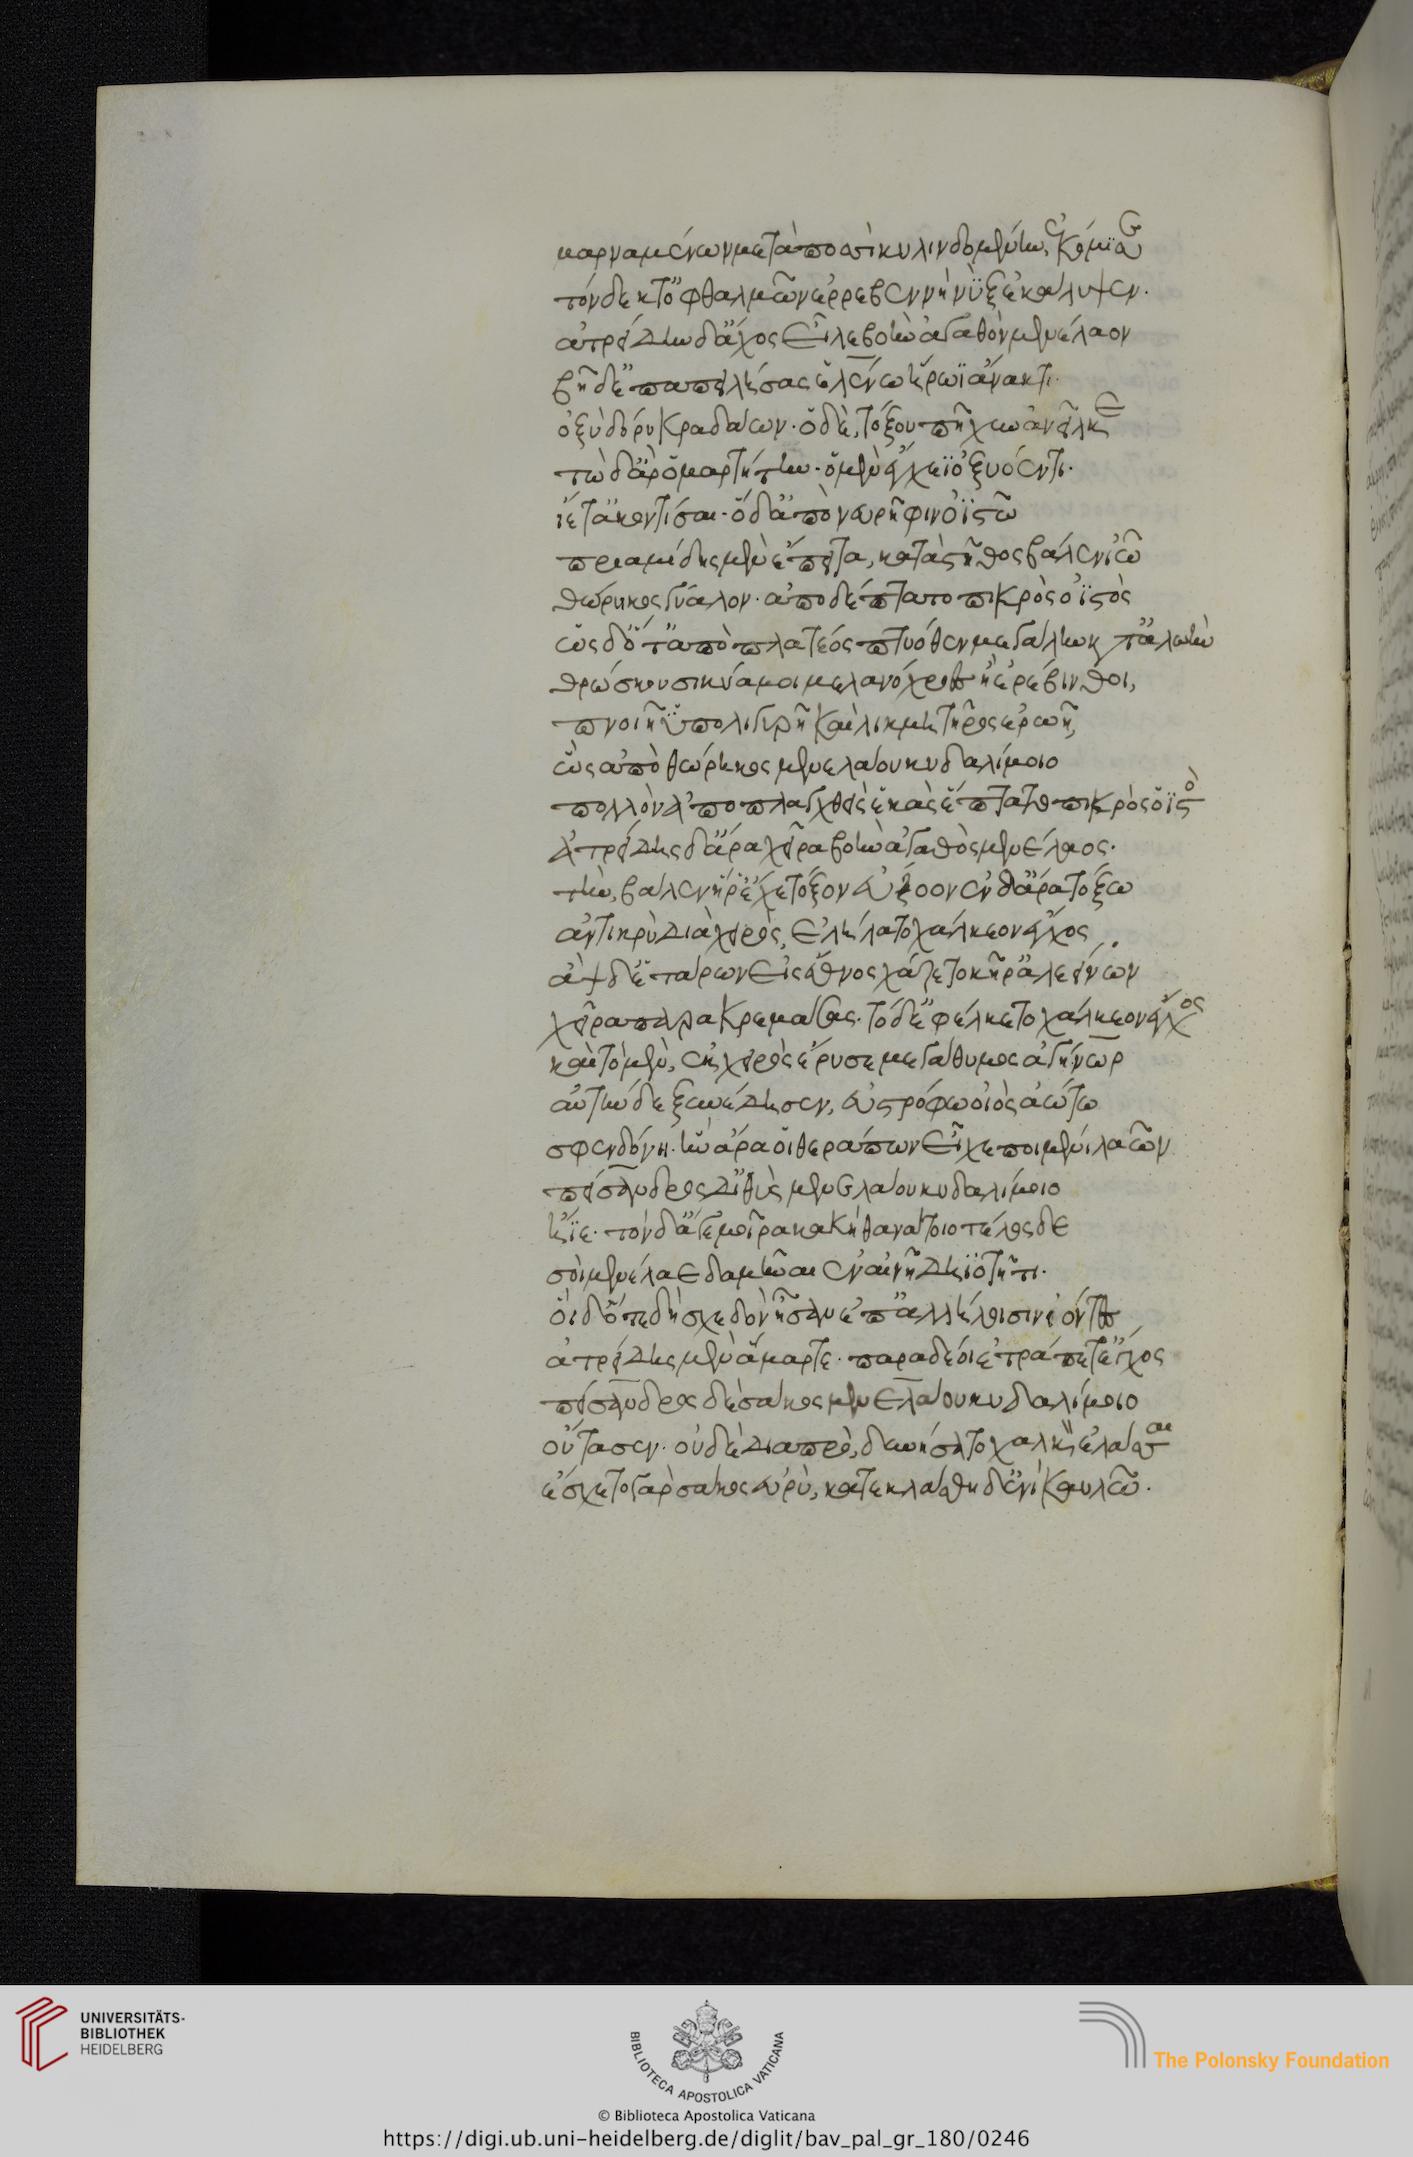 μαρναμένων μετὰ ποσὶ κυλινδομένην ἐκόμισσε
τὸν δὲ κατ' ὀφθαλμῶν ἐρρεβεννὴ νὺξ ἐκάλυψεν.
ἀτρείδην δ' ἄχος εἷλε βοὴν ἀγαθὸν μενέλαον
βῆ δ' ἐπαπειλήσας ἑλένῳ ἥρωϊ ἄνακτι.
ὀξὺ δόρυ κραδάων. ὁ δὲ, τόξου πῆχυν ἄνειλκε
τὼ δ' ἄρ' ὁμαρτήτην. ὁ μὲν ἔγχεϊ ὀξυόεντι.
ἵετ' ἀκοντίσαι. ὁ δ' ἀπὸ νευρῆφιν ὀϊστῷ
πριαμίδης μὲν ἔπειτα, κατὰ στῆθος βάλεν ἰῷ
θώρηκος γύαλον. ἀπὸ δέπτατο πικρὸς ὀϊστὸς
ὡς δ' ὅτ' ἀπὸ πλατέος πτυόθεν μεγάλην κατ' ἀλωὴν
θρώσκουσι κύαμοι μελανόχροες ἢ ἐρέβινθοι,
πνοιῇ ὕπο λιγυρῇ καὶ λικμητῆρος ἐρωῇ,
ὣς ἀπὸ θώρηκος μενελάου κυδαλίμοιο
πολλὸν ἀποπλαγχθεὶς ἑκὰς ἔπτατο πικρὸς ὀϊστὸς
ἀτρείδης δ' ἄρα χεῖρα βοὴν ἀγαθὸς μενέλαος.
τὴν, βάλεν ᾗ ῥ' ἔχε τόξον ἐΰξοον ἐν δ' ἄρα τόξῳ
ἀντικρὺ διὰ χειρὸς, ἐλήλατο χάλκεον ἔγχος
ἂψ δ' ἑτάρων εἰς ἔθνος χάζετο κῆρ' ἀλεείνων
χεῖρα παρακρεμάσας. τὸ δ' ἐφέλκετο χάλκεον ἔγχος
καὶ τὸ μὲν, ἐκ χειρὸς ἔρυσε μεγάθυμος ἀγήνωρ
αὐτὴν δὲ ξυνέδησεν, ἐϋστρόφῳ οἰὸς ἀώτῳ
σφενδόνη. ἣν ἄρα οἱ θεράπων εἶχε ποιμένι λαῶν
πείσανδρος δ' ἰθὺς μενελάου κυδαλίμοιο
ἤϊε. τὸν δ' ἄγε μοῖρα κακὴ θανάτοιο τέλος δε
σοὶ μενέλαε δαμῆναι ἐν αἰνῇ δηϊοτῆτι.
οἱ δ' ὅτε δὴ σχεδὸν ἦσαν ἐπ' ἀλλήλοισιν ἰόντες
ἀτρείδης μὲν ἅμαρτε. παραὶ δέ οἱ ἐτράπετ' ἔγχος
πείσανδρος δὲ σάκος μενελάου κυδαλίμοιο
οὔτασεν. οὐδὲ διαπρὸ, δυνήσατο χαλκὸν ἐλάσσαι
ἔσχετο γὰρ σάκος εὐρὺ, κατεκλάσθη δ' ἐνὶ καυλῷ.
UNIVERSITÄTS-
BIBLIOTHEK
HEIDELBERG
BIBLIOTECA APOSTOLICA VATICANA
The Polonsky Foundation
© Biblioteca Apostolica Vaticana
https://digi.ub.uni-heidelberg.de/diglit/bav_pal_gr_180/0246